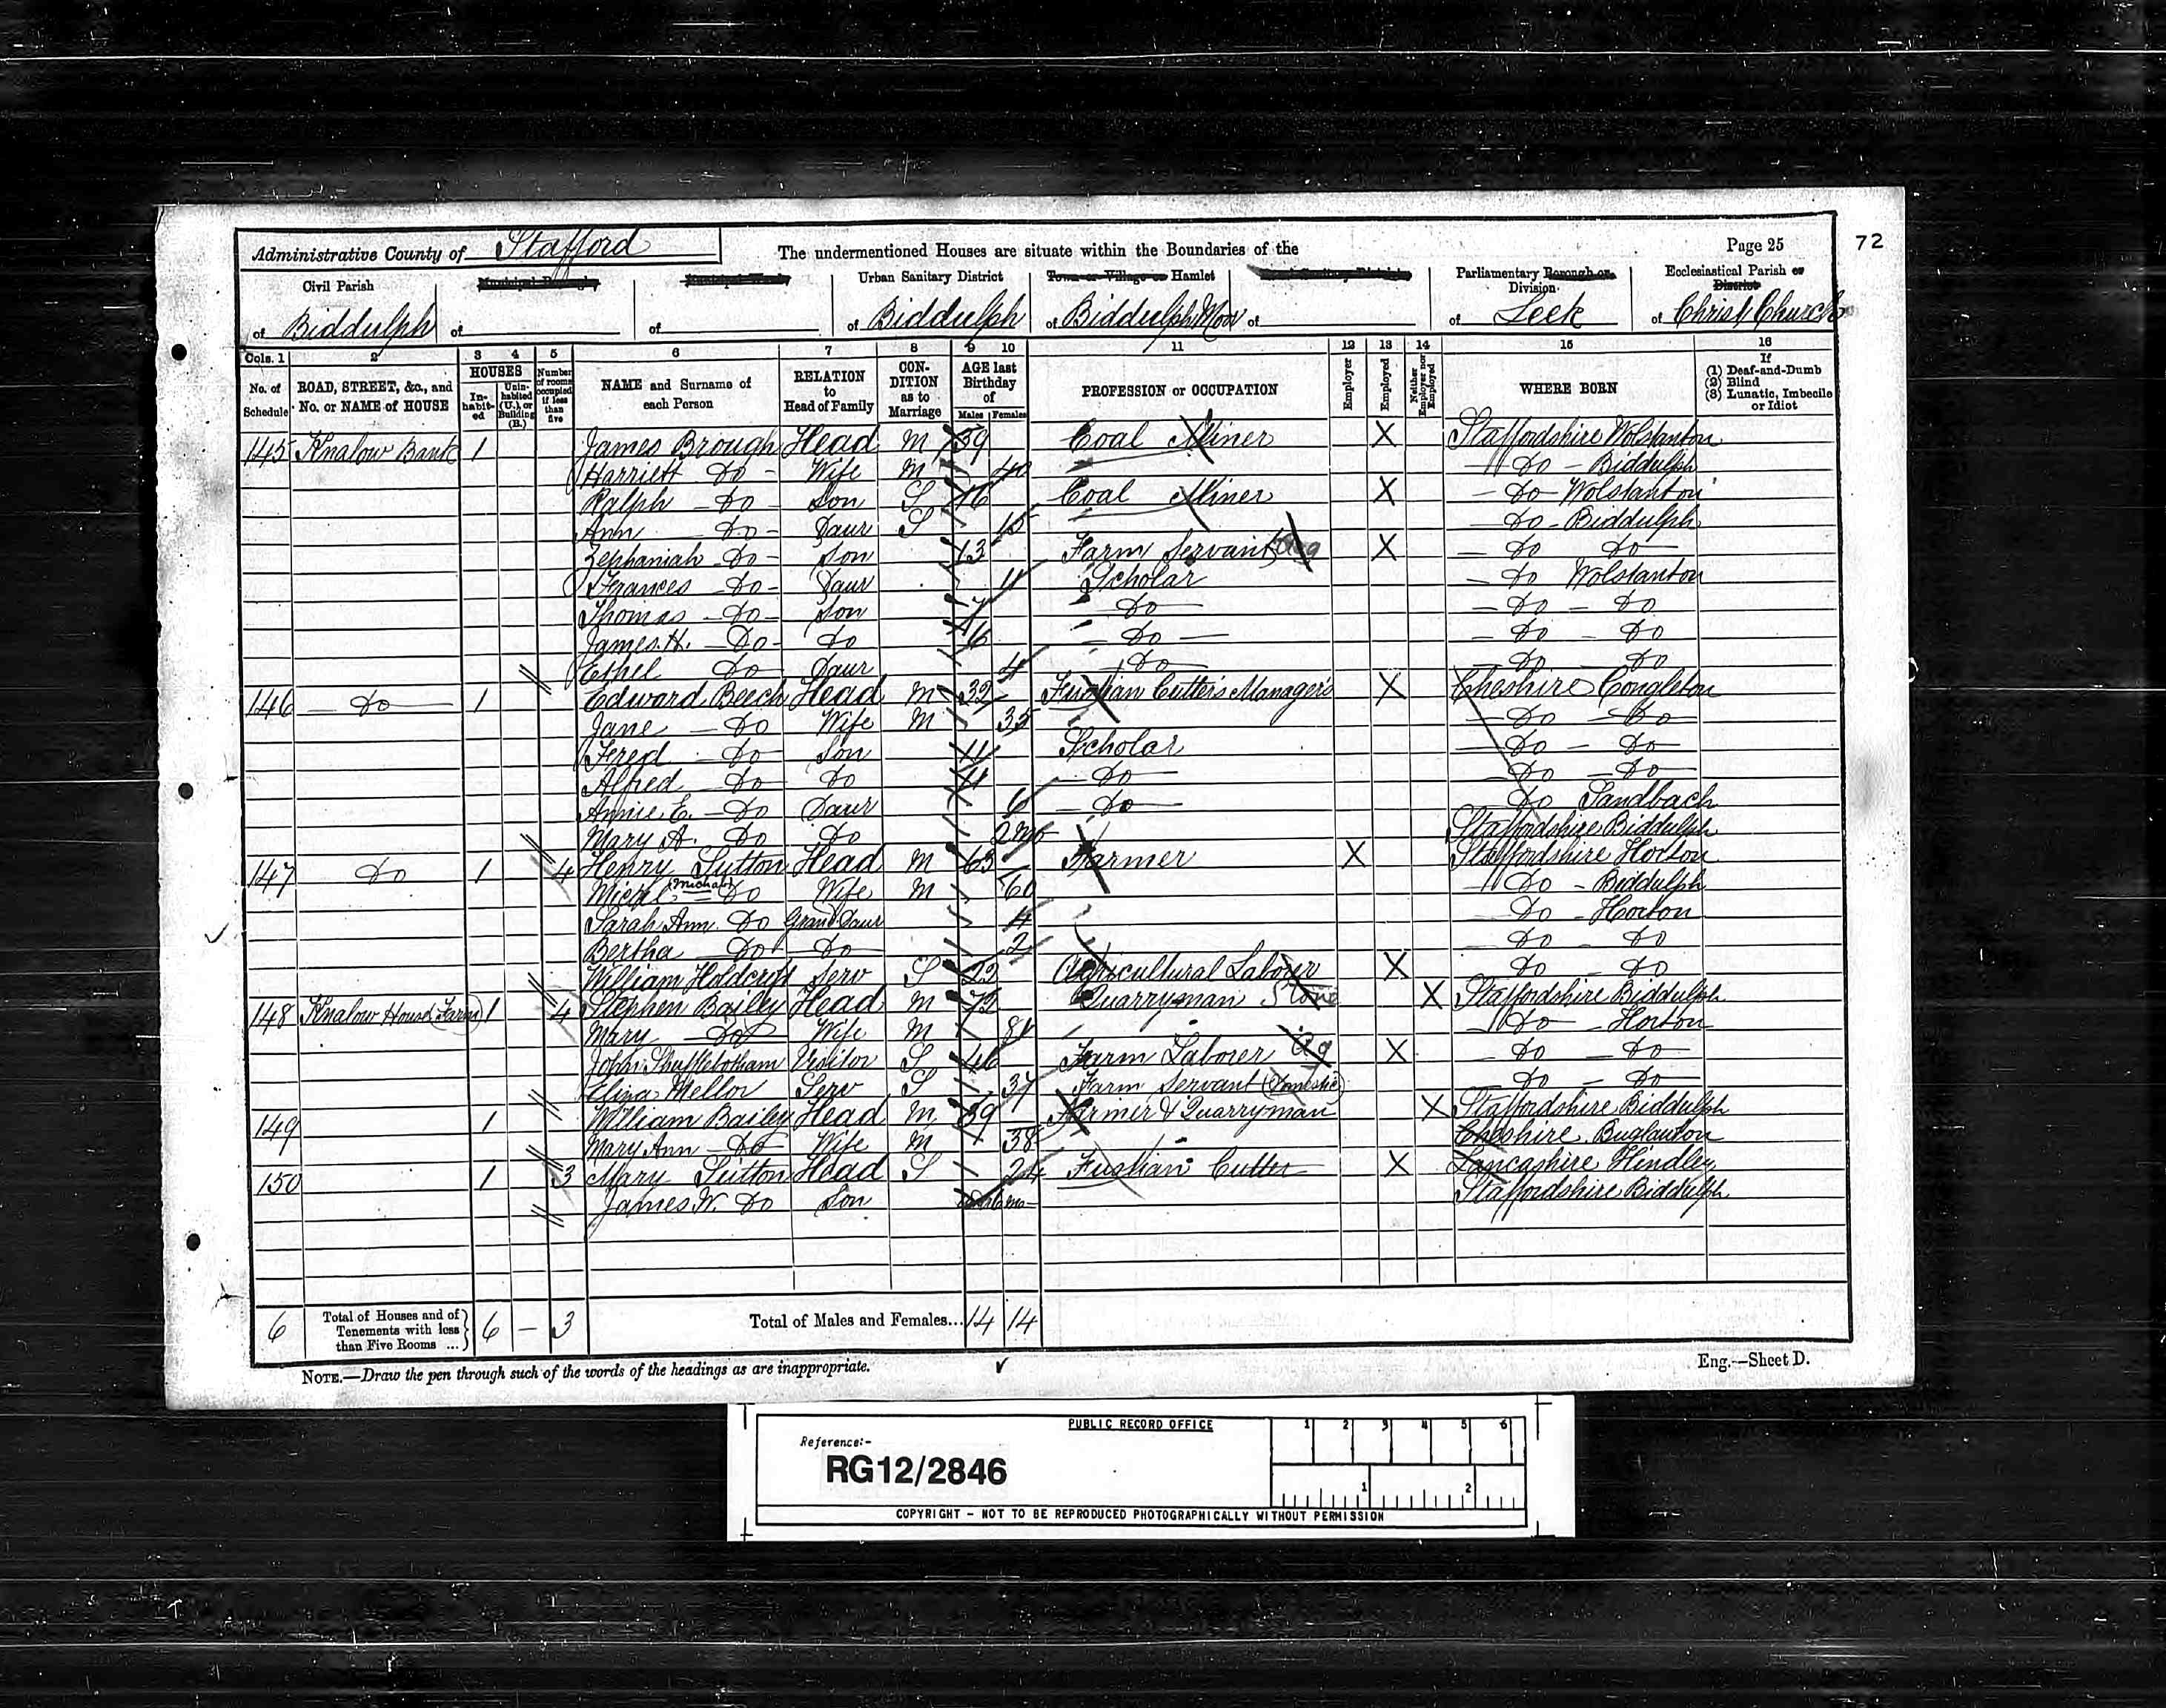 Administrative County of Stafford
The undermentioned Houses are situate within the Boundaries of the
Page 25
72
Civil Parish
Urban Sanitary District
Town or Village or Hamlet
Parliamentary Borough or Division
Ecclesiastical Parish or District
of Biddulph of of of Biddulph of Biddulph Moor of of Leek of Christ Church
Cols. 1 2 3 4 5 6 7 8 9 10 11 12 13 14 15 16
No. of Schedule
ROAD, STREET, &c., and No. or NAME of HOUSE
HOUSES
In-habit-ed
Unin-habited (U.), or Building (B.)
Number of rooms occupied if less than five
NAME and Surname of each Person
RELATION to Head of Family
CON-DITION as to Marriage
AGE last Birthday of
Males Females
PROFESSION or OCCUPATION
Employer
Employed
Neither Employer nor Employed
WHERE BORN
If
(1) Deaf-and-Dumb
(2) Blind
(3) Lunatic, Imbecile or Idiot
145 Knalow Bank 1 James Brough Head M 39 Coal Miner X Staffordshire Wolstanton
Harriett Do Wife M 40 Do Biddulph
Ralph Do Son S 16 Coal Miner X Do Wolstanton
Ann Do Daur S 15 Do Biddulph
Zephaniah Do Son 13 Farm Servant Ag X Do Do
Frances Do Daur 11 Scholar Do Wolstanton
Thomas Do Son 7 Do Do Do
James H. Do Do 6 Do Do Do
Ethel Do Daur 4 Do Do Do
146 Do 1 Edward Beech Head M 32 Fustian Cutters Managers X Cheshire Congleton
Jane Do Wife M 35 Do Do
Fred Do Son 11 Scholar Do Do
Alfred Do Do 11 Do Do Do
Annie E. Do Daur 6 Do Do Sandbach
Mary A. Do Do 2 mo Staffordshire Biddulph
147 Do 1 4 Henry Sutton Head M 63 Farmer X Staffordshire Horton
Do Wife M 60 Do Biddulph
Sarah Ann Do Grand Daur 4 Do Horton
Bertha Do Do 2 Do Do
William Holdcroft Serv S 22 Agricultural Laborer X Do Do
148 Knalow House (Farm) 1 4 Stephen Bailey Head M 72 Quarryman Stone X Staffordshire Biddulph
Mary Do Wife M 81 Do Horton
John Shufflebotham Visitor S 46 Farm Laborer Ag X Do Do
Eliza Mellor Serv S 37 Farm Servant (Domestic) Do Do
149 1 William Bailey Head M 39 Farmer & Quarryman X Staffordshire Biddulph
Mary Ann Do Wife M 38 Cheshire Buglawton
150 1 3 Mary Sutton Head S 24 Fustian Cutter X Lancashire Hindley
James W. Do Son 6 mo Staffordshire Biddulph
6 Total of Houses and of Tenements with less than Five Rooms ... 6 – 3 Total of Males and Females... 14 14
NOTE.—Draw the pen through such of the words of the headings as are inappropriate.
Eng.—Sheet D.
PUBLIC RECORD OFFICE
1 2 3 4 5 6
Reference:-
RG12/2846
1 2
COPYRIGHT - NOT TO BE REPRODUCED PHOTOGRAPHICALLY WITHOUT PERMISSION